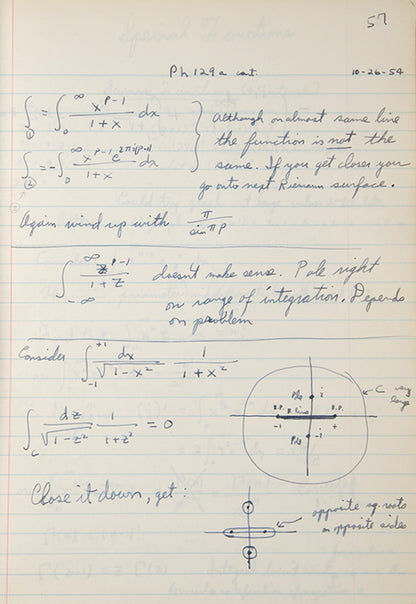 57
Ph 129a cont. 10-26-54
∫① = ∫₀^∞ x^(p-1)/(1+x) dx
∫② = -∫₀^∞ x^(p-1) e^(2πi(p-1))/(1+x) dx
Although on almost same line
the function is not the
same. If you get closer you
go onto next Riemann surface.
Again wind up with π/(sin πp)
∫_{-∞}^{∞} z^(p-1)/(1+z) doesn't make sense. Pole right
on range of integration. Depends
on problem
Consider ∫_{-1}^{+1} dx/√(1-x²) 1/(1+x²)
∫_C dz/√(1-z²) 1/(1+z²) = 0
Pole i
C very
large
B.P. B. line B.P.
-1 +
Pole -i
Close it down, get:
opposite sq. roots
on opposite sides